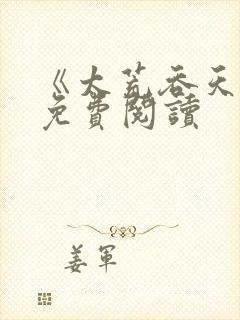 《大荒吞天
免費閱讀
姜軍